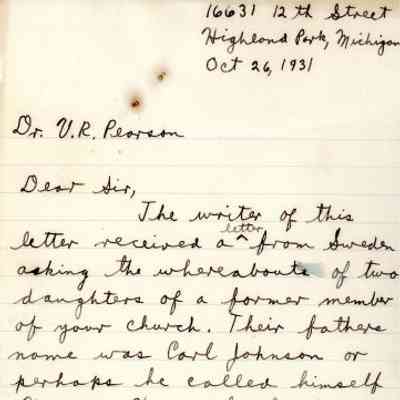 16631 12th Street
Highland Park, Michigan
Oct 26, 1931
Dr. V.R. Pearson
Dear Sir,
The writer of this
letter received a letter from Sweden
asking the whereabouts of two
daughters of a former member
of your church. Their fathers
name was Carl Johnson or
perhaps he called himself